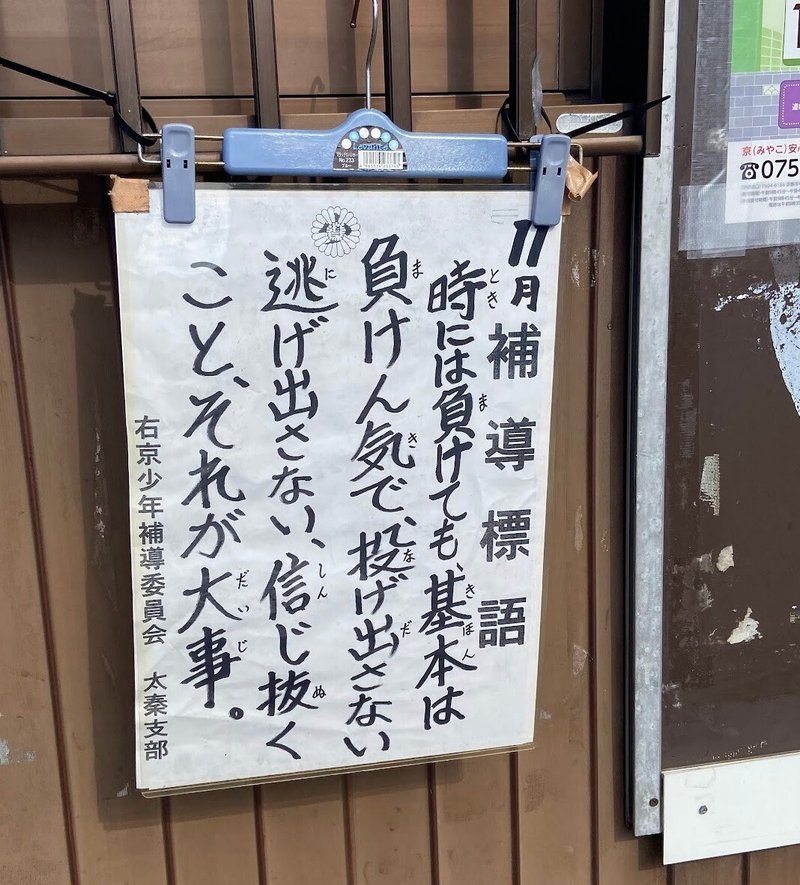 11月 補導標語
時には負けても、基本は
負けん気で、投げ出さない
逃げ出さない、信じ抜く
こと、それが大事。
右京少年補導委員会 太秦支部
No.233
ブルー
京(みやこ)安
☎075